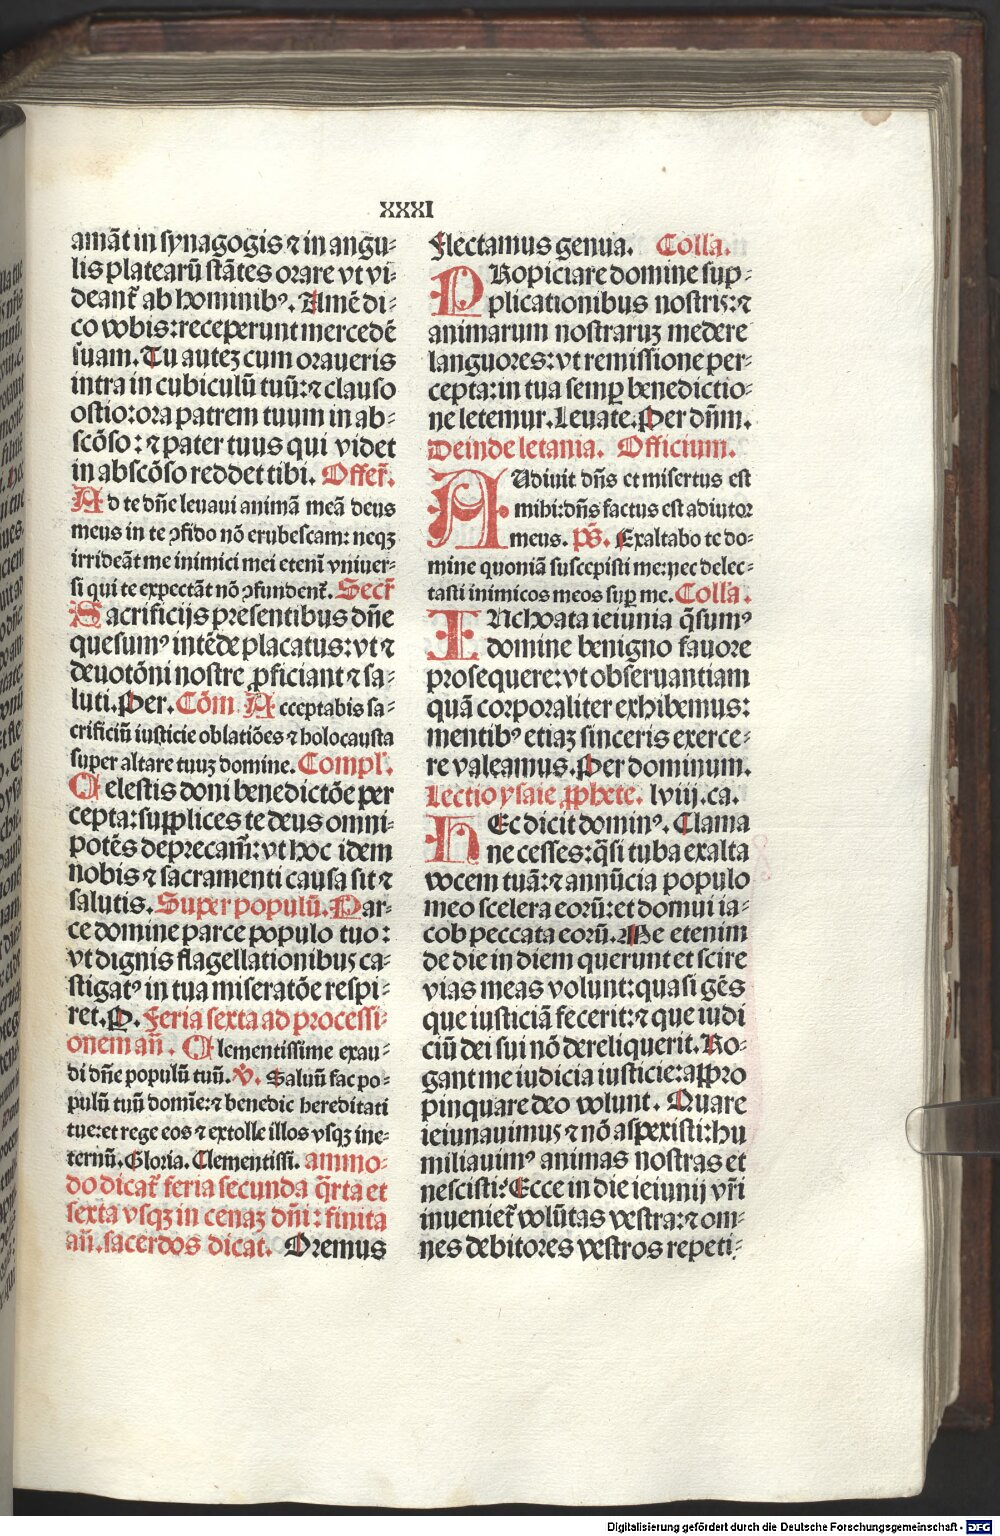 XXXI
amãt in synagogis ⁊ in angu⸗
lis platearũ stãtes orare vt vi⸗
deant᷑ ab hominibꝰ. Amẽ di⸗
co vobis: receperunt mercedẽ
suam. Tu auteꝫ cum oraueris
intra in cubiculũ tuũ: ⁊ clauso
ostio: ora patrem tuum in ab⸗
scõso: ⁊ pater tuus qui videt
in abscõso reddet tibi. Offer̃.
Ad te dñe leuaui animã meã deus
meus in te ꝯfido nõ erubescam: neqꝫ
irrideãt me inimici mei etenĩ vniuer⸗
si qui te expectãt nõ ꝯfundent᷑. Secr̃
Sacrificijs presentibus dñe
quesumꝰ intẽde placatus: vt ⁊
deuotõni nostre ꝓficiant ⁊ sa⸗
luti. Per. Cõm Acceptabis sa⸗
crificiũ iusticie oblatiões ⁊ holocausta
super altare tuuꝫ domine. Compl̃.
Celestis doni benedictõe per
cepta: supplices te deus omni⸗
potẽs deprecam᷑: vt hoc idem
nobis ⁊ sacramenti causa sit ⁊
salutis. Super populũ. Par⸗
ce domine parce populo tuo:
vt dignis flagellationibuꝫ ca⸗
stigatꝰ in tua miseratõe respi⸗
ret. P. Feria sexta ad processi⸗
onem añ. Clementissime exau⸗
di dñe populũ tuũ. V̊. Saluũ fac po⸗
pulũ tuũ domĩe: ⁊ benedic hereditati
tue: et rege eos ⁊ extolle illos vsqꝫ ine⸗
ternũ. Gloria. Clementissi. ammo⸗
do dicat᷑ feria secunda q̃rta et
sexta vsqꝫ in cenaꝫ dñi: finita
añ. sacerdos dicat. Oremus
Flectamus genua. Colla.
PRopiciare domine sup⸗
plicationibus nostrꝭ: ⁊
animarum nostraruꝫ medere
langores: vt remissione per⸗
cepta: in tua semꝑ benedictio⸗
ne letemur. Leuate. Per dñm.
Deinde letania. Officium.
AUdiuit dñs et misertus est
mihi: dñs factus est adiutor
meus. pš. Exaltabo te do⸗
mine quoniã suscepisti me: nec delec⸗
tasti inimicos meos suꝑ me. Colla.
INchoata ieiunia q̃sumꝰ
domine benigno fauore
prosequere: vt obseruantiam
quã corporaliter exhibemus:
mentibꝰ etiaꝫ sinceris exerce⸗
re valeamus. Per dominum.
Lectio ysaie ꝓphete. lviij. ca.
HEc dicit dominꝰ. Clama
ne cesses: q̃si tuba exalta
vocem tuã: ⁊ annũcia populo
meo scelera eorũ: et domui ia⸗
cob peccata eorũ. Me etenim
de die in diem querunt et scire
vias meas volunt: quasi gẽs
que iusticiã fecerit: ⁊ que iudi
ciũ dei sui nõ dereliquerit. Ro⸗
gant me iudicia iusticie: appro
pinquare deo volunt. Quare
ieiunauimuꝫ ⁊ nõ aspexisti: hu
miliauimꝰ animas nostras et
nescisti? Ecce in die ieiunij vr̃i
inuenit᷑ volũtas vestra: ⁊ om⸗
nes debitores vestros repeti⸗
Digitalisierung gefördert durch die Deutsche Forschungsgemeinschaft - DFG